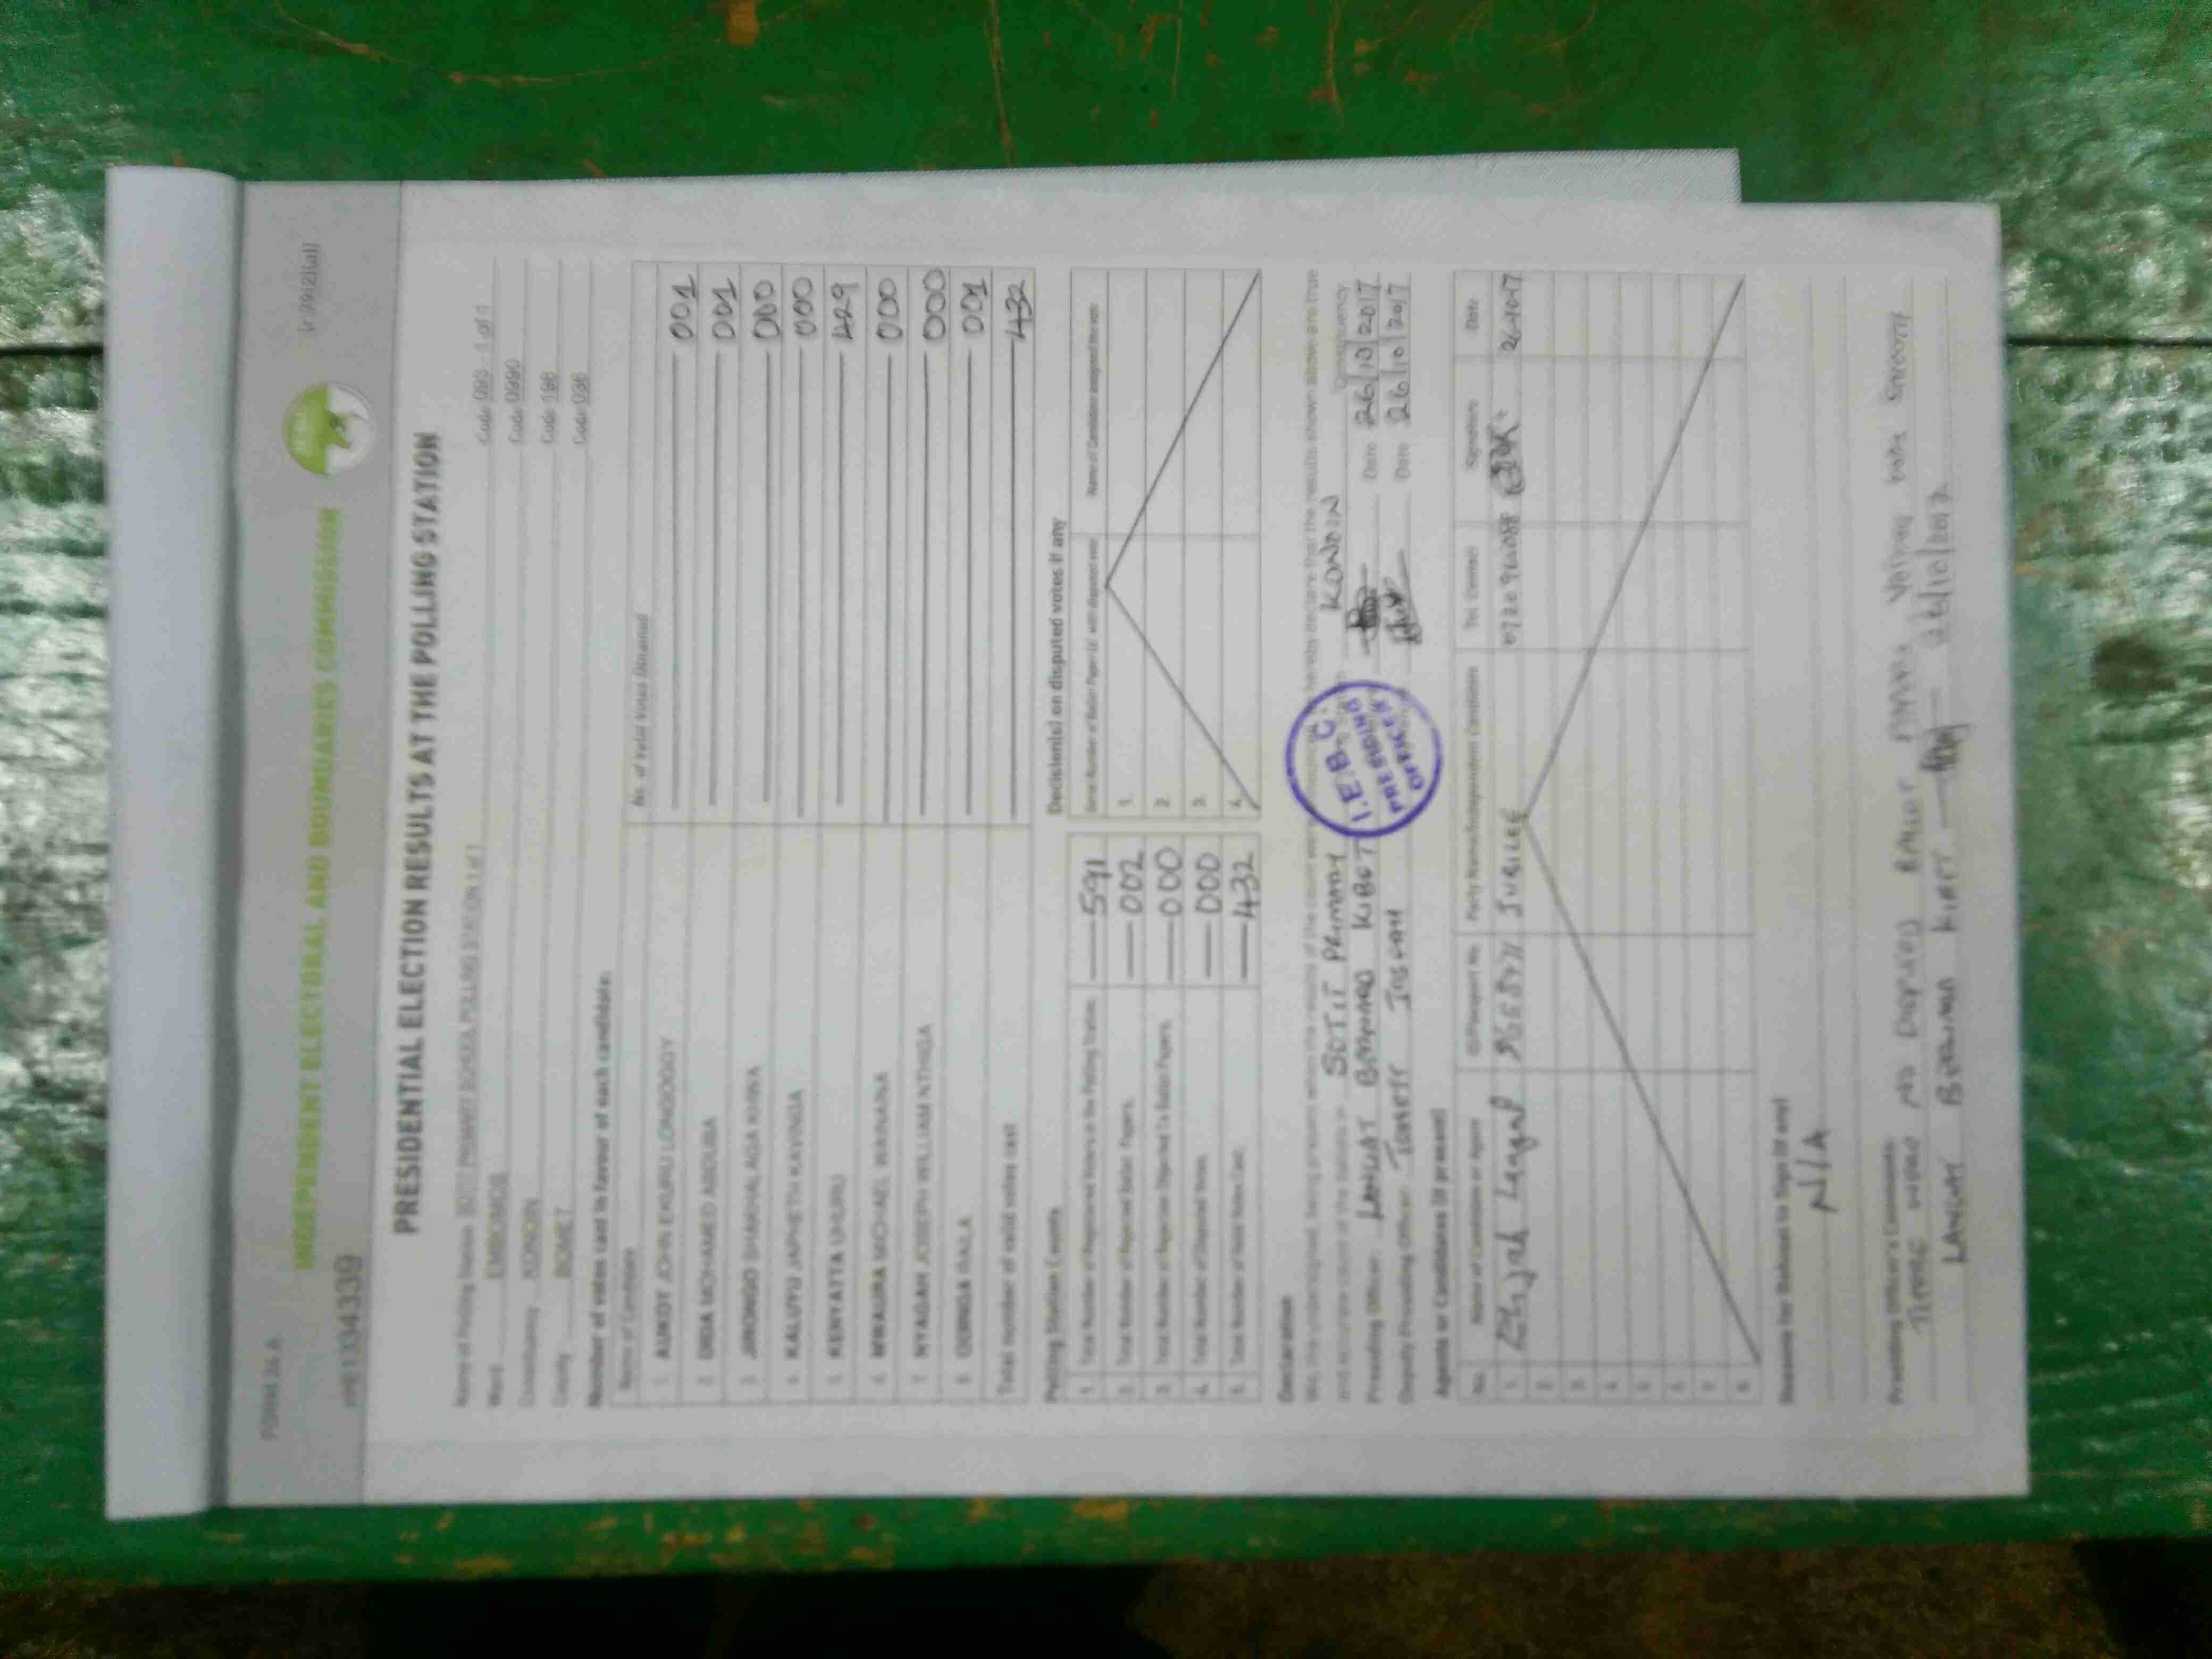 FORM 34 A
(r.79(2)(a))
INDEPENDENT ELECTORAL AND BOUNDARIES COMMISSION
PRESIDENTIAL ELECTION RESULTS AT THE POLLING STATION
Name of Polling Station SOTIT PRIMARY SCHOOL POLLING STATION 1 of 1 Code 093 - 1 of 1
Ward EMBOMOS Code 0990
Constituency KONOIN Code 198
County BOMET Code 036
Number of votes cast in favour of each candidate:
Name of Candidate No. of Valid Votes Obtained
1. AUKOT JOHN EKURU LONGOGGY 001
2. DIDA MOHAMED ABDUBA 001
3. JIRONGO SHAKHALAGA KHWA 000
4. KALUYU JAPHETH KAVINGA 000
5. KENYATTA UHURU 429
6. MWAURA MICHAEL WAINAINA 000
7. NYAGAH JOSEPH WILLIAM NTHIGA 000
8. ODINGA RAILA 001
Total number of valid votes cast 432
Polling Station Counts
1. Total Number of Registered Voters in the Polling Station 591
2. Total Number of Rejected Ballot Papers 002
3. Total Number of Rejection Objected To Ballot Papers 000
4. Total Number of Disputed Votes 000
5. Total Number of Valid Votes Cast 432
Decision(s) on disputed votes if any
Serial Number of Ballot Paper (s) with disputed vote Name of Candidate assigned the vote
1.
2.
3.
4.
Declaration
We, the undersigned, being present when the results of the count were announced, do hereby declare that the results shown above are true
and accurate count of the ballots in SOTIT PRIMARY KONOIN Constituency
Presiding Officer: LANGAT BERNARD KIBET Date 26/10/2017
Deputy Presiding Officer: Date 26/10/2017
I.E.B.C.
PRESIDING
OFFICER
Agents or Candidates (if present)
No. Name of Candidate or Agent ID/Passport No. Party Name/Independent Candidate Tel. Contact Signature Date
1. Elijah JUBILEE 26-10-17
2.
3.
4.
5.
6.
7.
8.
Reasons for Refusal to Sign (if any)
N/A
Presiding Officer's Comments
THERE WERE NO DISPUTED BALLOT PAPERS. VOTING WAS SMOOTH
LANGAT BERNARD KIBET 26/10/2017